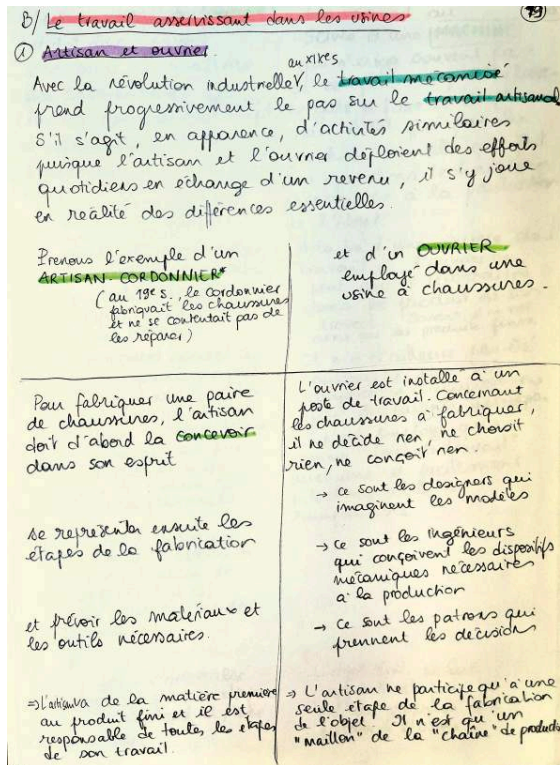 B/ Le travail asservissant dans les usines
79
① Artisan et ouvrier.
au XIXes
Avec la révolution industrielle, le travail mécanisé
prend progressivement le pas sur le travail artisanal
S'il s'agit, en apparence, d'activités similaires
puisque l'artisan et l'ouvrier déploient des efforts
quotidiens en échange d'un revenu, il s'y joue
en réalité des différences essentielles.
Prenons l'exemple d'un
ARTISAN-CORDONNIER*
(au 19e s, le cordonnier
fabriquait les chaussures
et ne se contentait pas de
les réparer)
et d'un OUVRIER
employé dans une
usine à chaussures.
Pour fabriquer une paire
de chaussures, l'artisan
doit d'abord la concevoir
dans son esprit
se représenter ensuite les
étapes de la fabrication
et prévoir les matériaux et
les outils nécessaires.
⇒ L'artisan va de la matière première
au produit fini et il est
responsable de toutes les étapes
de son travail.
L'ouvrier est installé à un
poste de travail. Concernant
les chaussures à fabriquer,
il ne décide rien, ne choisit
rien, ne conçoit rien.
→ ce sont les designers qui
imaginent les modèles
→ ce sont les ingénieurs
qui conçoivent les dispositifs
mécaniques nécessaires
à la production
→ ce sont les patrons qui
prennent les décisions
⇒ L'artisan ne participe qu'à une
seule étape de la fabrication
de l'objet. Il n'est qu'un
"maillon" de la "chaîne" de